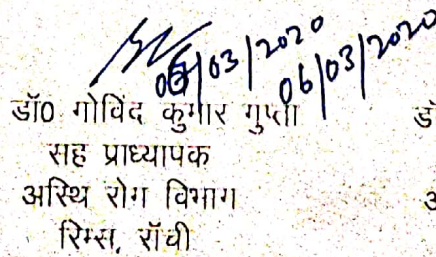 06/03/2020
06/03/2020
डॉ0 गोविंद कुमार गुप्ता
सह प्राध्यापक
अस्थि रोग विभाग
रिम्स, राँची